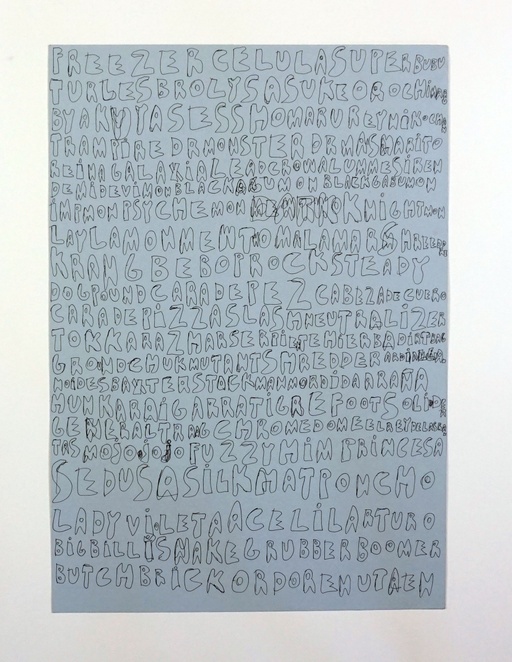 FREEZERCELULASUPERBUBU
TURLESBROLYSASUKEOROCHIMA
BYAKUYASESSHOMARUREYNINOCHE
TRAMPIREDRMONSTERDRMASHARITO
REINAGALAXIALEADCROWALUMMESIREN
DEMIDEVIMONBLACKAGUMONBLACKGABUMON
IMPMONPSYCHEMON KNIGHTMON
LAYLAMONMEWTOMALAMARSHREEDER
KRANGBEBOPROCKSTEADY
DOGPOUNDCARADEPEZCABEZADECUERO
CARADEPIZZASLASHNEUTRALIZER
TOKKARAZHARSERPIENTEHIERBADIRTBAG
GROUNDCHUKMUTANTSHREDDER
NOIDESBAXTERSTOCKMANMORDIDARAÑA
HUNKARAIGARRATIGREFOOTSOLIDE
GENERALTRAAGCHROMEDOMEELREYDELASRA
TASMOJOJOJOFUZZYHIMPRINCESA
SEDUSASILKMATPONCHO
LADYVIOLETAACELILARTURO
BIGBILLISNAKEGRUBBERBOOMER
BUTCHBRICKORDORENUTAEN